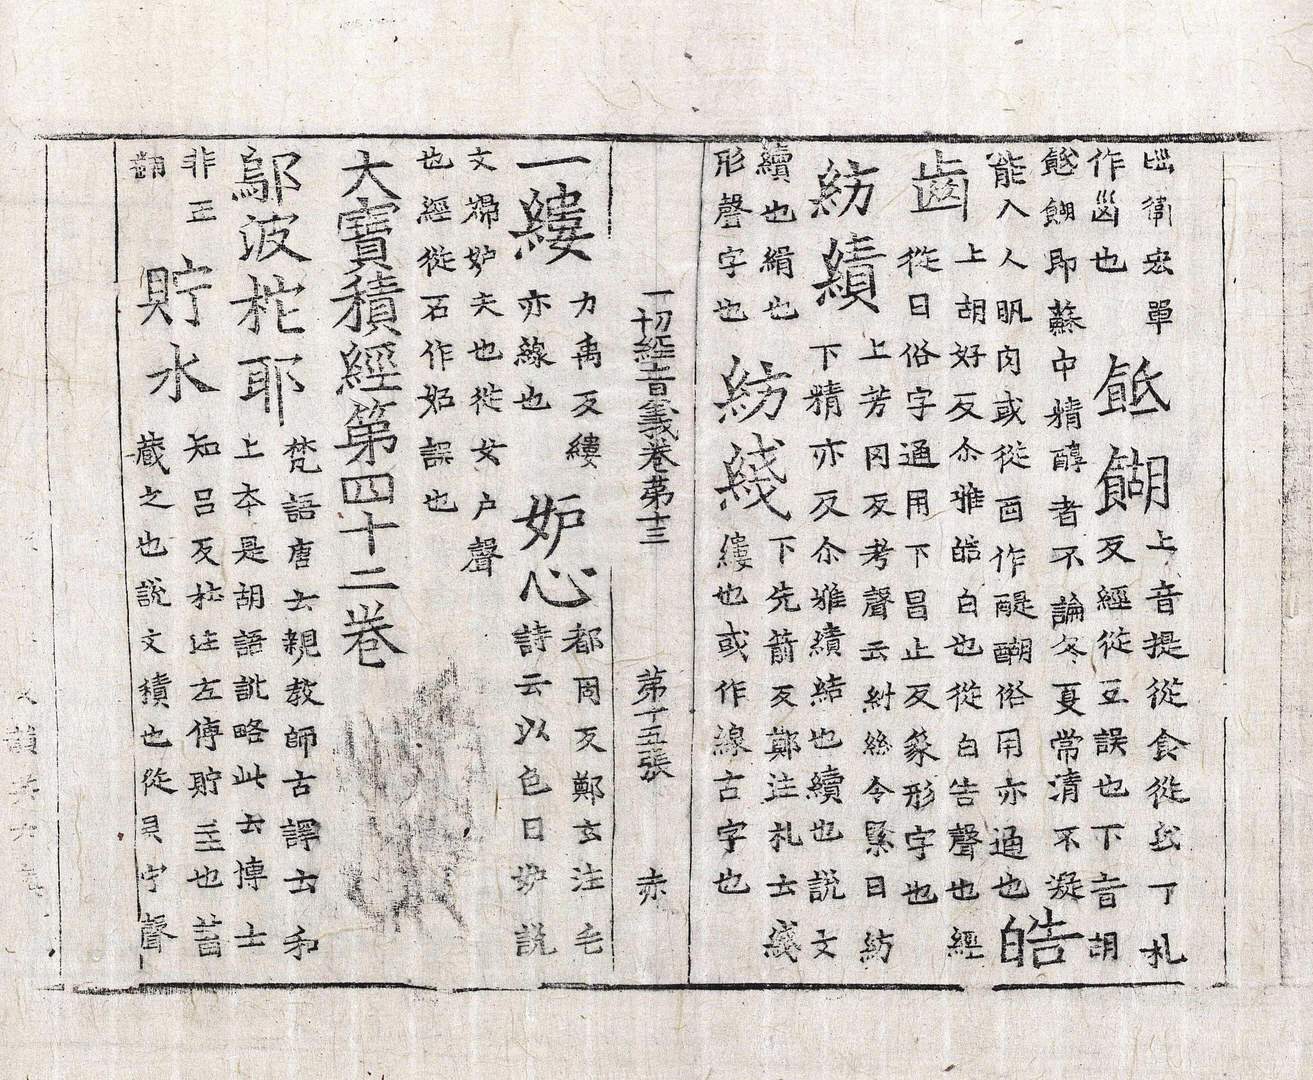 衛宏單作凷也䬫餬上音提從食從氐丁札反經從互誤也下音胡
䬫餬即蘇中精醇者不論冬夏常清不凝能入人肌肉或從酉作醍醐俗用亦通也皓
齒上胡好反尒雅皓白也從白告聲也經從日俗字通用下昌止反篆形字也
紡績上芳冈反考聲云紂絲令緊曰紡下精亦反尒雅績結也續也說文
續也緝也形聲字也紡綫下先箭反鄭注札云綫縷也或作線古字也
一切經音義卷第十三 第十五張 赤
一縷力禹反縷亦線也妒心都固反鄭玄注毛詩云以色曰妒說
文婦妒夫也從女户聲也經從石作妬誤也
大寶積經第四十二卷
鄔波柁耶梵語唐云親教師古譯云和上本是胡語訛略此云博士
非正翻貯水知呂反杜注左傳貯也蓄藏之也說文積也從貝宁聲